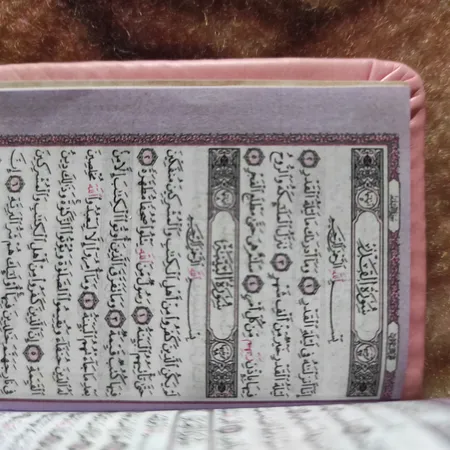 سُورَةُ القَدْرِ
بِسْمِ اللَّهِ الرَّحْمَٰنِ الرَّحِيمِ
إِنَّا أَنزَلْنَٰهُ فِى لَيْلَةِ الْقَدْرِ ١ وَمَا أَدْرَىٰكَ مَا لَيْلَةُ الْقَدْرِ ٢
لَيْلَةُ الْقَدْرِ خَيْرٌ مِّنْ أَلْفِ شَهْرٍ ٣ تَنَزَّلُ الْمَلَٰٓئِكَةُ وَالرُّوحُ
فِيهَا بِإِذْنِ رَبِّهِم مِّن كُلِّ أَمْرٍ ٤ سَلَٰمٌ هِىَ حَتَّىٰ مَطْلَعِ الْفَجْرِ ٥
سُورَةُ البَيِّنَةِ
بِسْمِ اللَّهِ الرَّحْمَٰنِ الرَّحِيمِ
لَمْ يَكُنِ الَّذِينَ كَفَرُوا مِنْ أَهْلِ الْكِتَٰبِ وَالْمُشْرِكِينَ مُنفَكِّينَ
حَتَّىٰ تَأْتِيَهُمُ الْبَيِّنَةُ ١ رَسُولٌ مِّنَ اللَّهِ يَتْلُوا صُحُفًا مُّطَهَّرَةً ٢
فِيهَا كُتُبٌ قَيِّمَةٌ ٣ وَمَا تَفَرَّقَ الَّذِينَ أُوتُوا الْكِتَٰبَ إِلَّا مِن
بَعْدِ مَا جَاءَتْهُمُ الْبَيِّنَةُ ٤ وَمَا أُمِرُوا إِلَّا لِيَعْبُدُوا اللَّهَ مُخْلِصِينَ
لَهُ الدِّينَ حُنَفَاءَ وَيُقِيمُوا الصَّلَوٰةَ وَيُؤْتُوا الزَّكَوٰةَ وَذَٰلِكَ دِينُ
الْقَيِّمَةِ ٥ إِنَّ الَّذِينَ كَفَرُوا مِنْ أَهْلِ الْكِتَٰبِ وَالْمُشْرِكِينَ
فِى نَارِ جَهَنَّمَ خَٰلِدِينَ فِيهَا أُولَٰٓئِكَ هُمْ شَرُّ الْبَرِيَّةِ ٦ إِنَّ